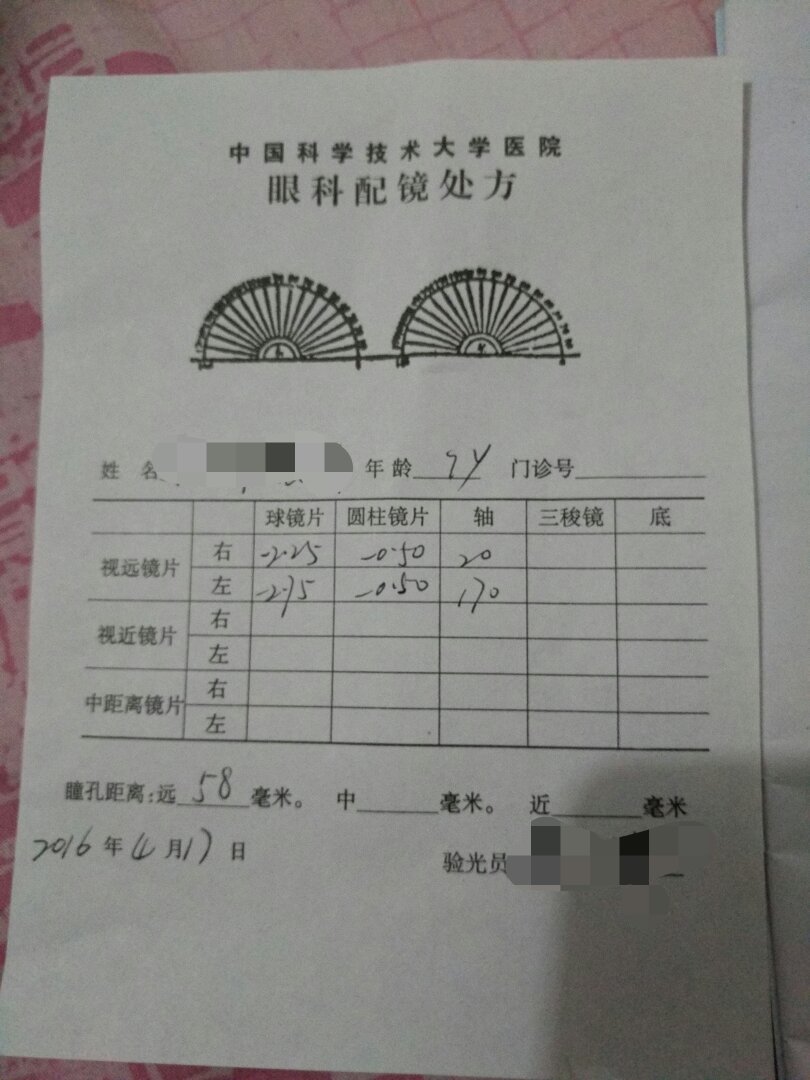 中国科学技术大学医院
眼科配镜处方
姓 名 年 龄 门诊号
球镜片 圆柱镜片 轴 三稜镜 底
视远镜片 右 -2.25 -0.50 20
左 -2.75 -0.50 170
视近镜片 右
左
中距离镜片 右
左
瞳孔距离:远 58 毫米。 中 毫米。 近 毫米
2016 年 4 月 17 日 验光员